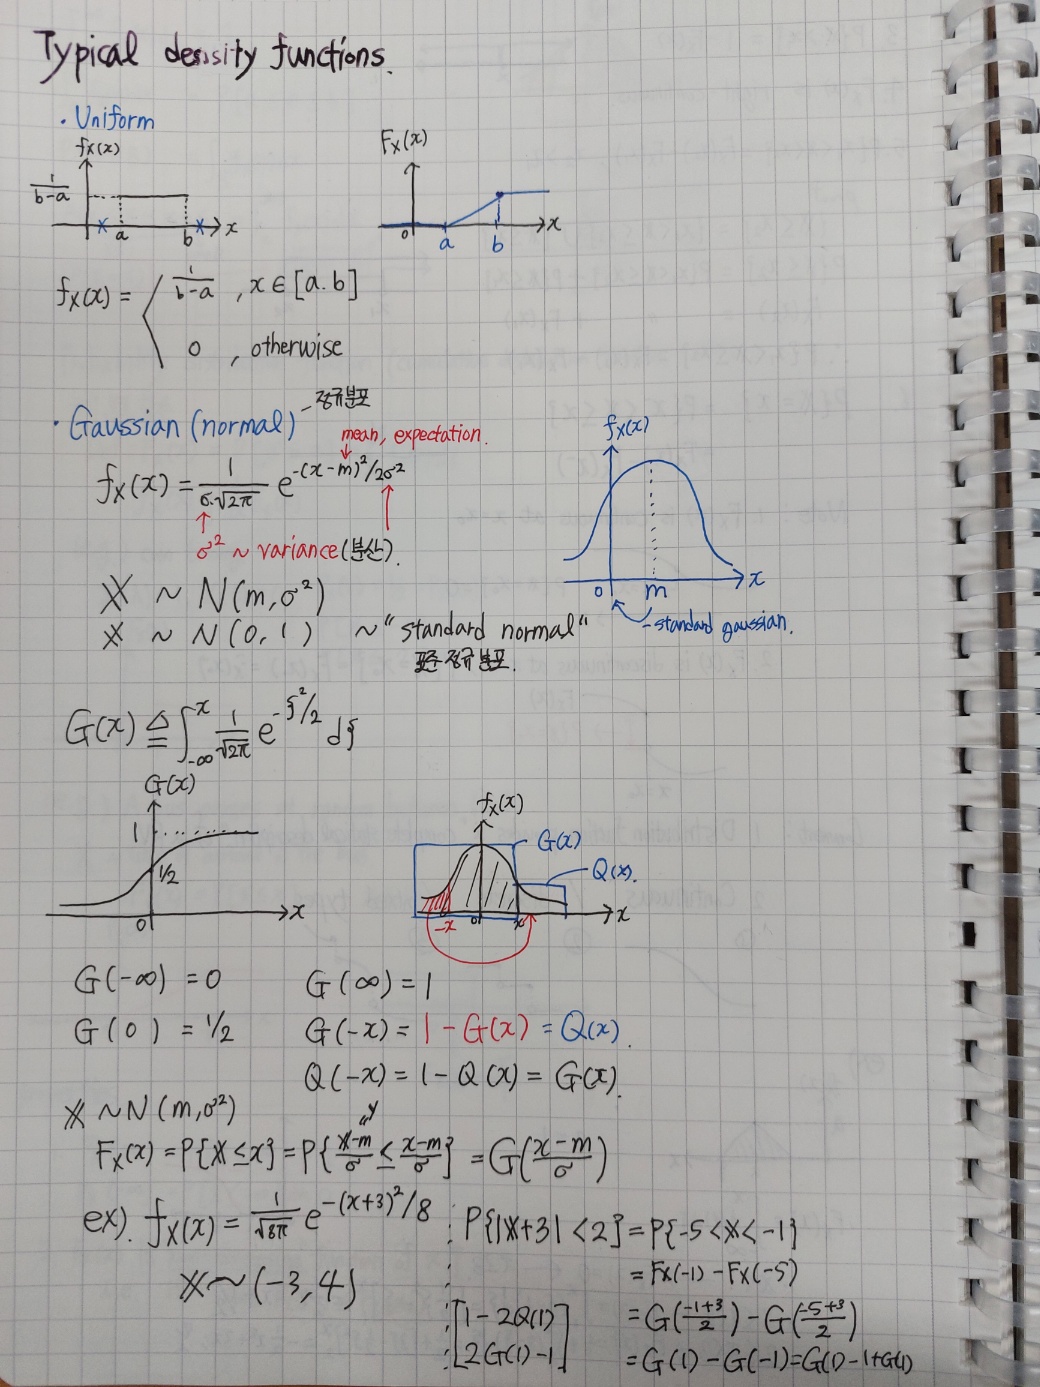 Typical density functions.
· Uniform
fx(x)
1/b-a
a b x
Fx(x)
0 a b x
fx(x) = 1/b-a , x ∈ [a.b]
0 , otherwise
· Gaussian (normal) - 정규분포
mean, expectation.
fx(x) = 1/σ·√2π e^-(x-m)²/2σ²
σ² ~ variance (분산).
X ~ N(m, σ²)
X ~ N(0, 1) ~ "standard normal"
표준 정규 분포.
fx(x)
0 m x
- standard gaussian.
G(x) ≜ ∫_-∞^x 1/√2π e^-ξ²/2 dξ
G(x)
1
1/2
0 x
fx(x)
G(x)
Q(x).
-x 0 x x
G(-∞) = 0 G(∞) = 1
G(0) = 1/2 G(-x) = 1 - G(x) = Q(x).
Q(-x) = 1 - Q(x) = G(x).
X ~ N(m, σ²)
"Y
Fx(x) = P{X ≤ x} = P{X-m/σ ≤ x-m/σ} = G(x-m/σ)
ex). fx(x) = 1/√8π e^-(x+3)²/8
X ~ (-3, 4)
P{|X+3| < 2} = P{-5 < X < -1}
= Fx(-1) - Fx(-5)
= G(-1+3/2) - G(-5+3/2)
= G(1) - G(-1) = G(1) - 1 + G(1)
[1 - 2Q(1)
2G(1) - 1]